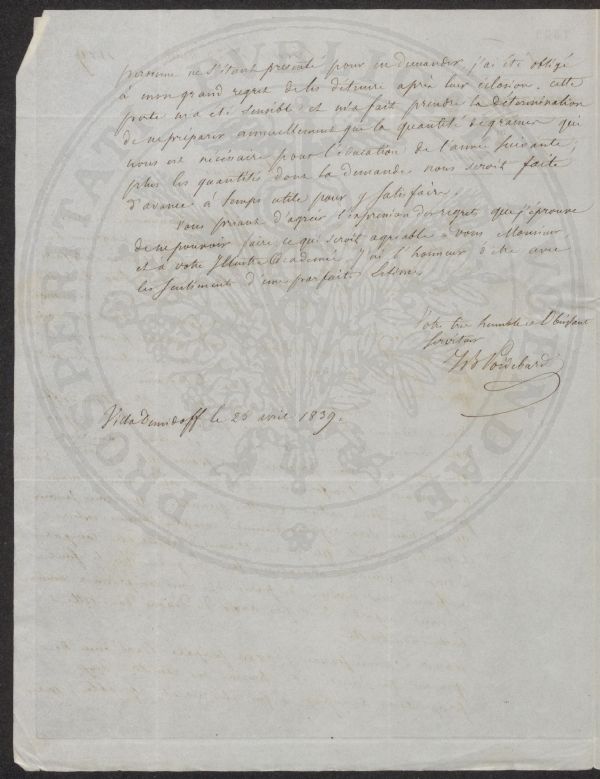 personne ne s'étant présenté pour en demander, j'ai été obligé
à mon grand regret de les détruire après leur éclosion. cette
perte m'a été sensible et m'a fait prendre la détermination
de ne préparer annuellement que la quantité de graines qui
nous est nécessaire pour l'éducation de l'année suivante,
plus les quantités dont la demande nous seroit faite
d'avance à temps utile pour y satisfaire.
Vous priant d'agréer l'expression des regrets que j'éprouve
de ne pouvoir faire ce qui seroit agréable à vous Monsieur
et à votre Illustre Académie, J'ai l'honneur d'être avec
les sentiments d'une parfaite Estime
Votre très humble et Obéissant
Serviteur
Villa Demidoff le 25 avril 1839.
PUBLICAE
PROSPERITATI AUGENDAE